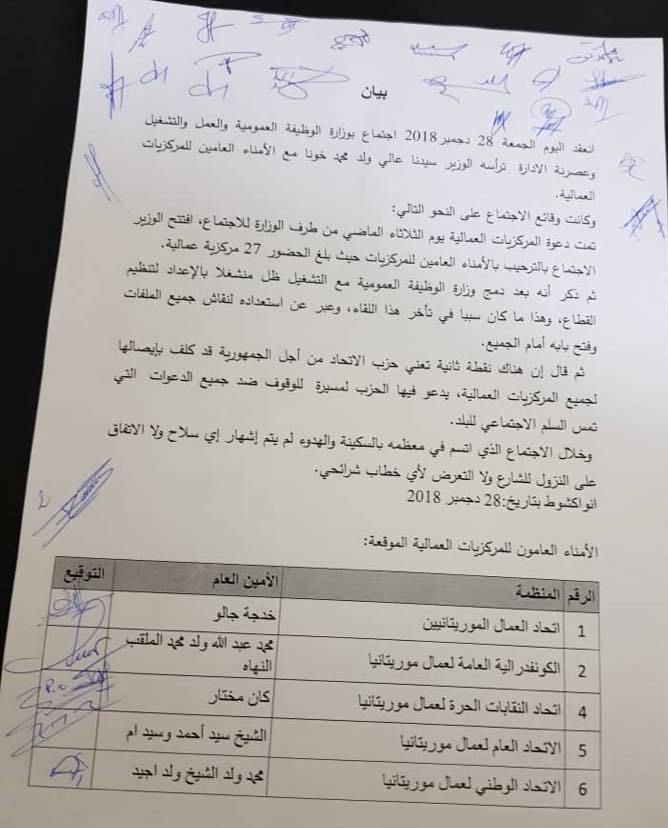 بيان
انعقد اليوم الجمعة 28 دجمبر 2018 اجتماع بوزارة الوظيفة العمومية والعمل والتشغيل
وعصرنة الادارة ترأسه الوزير سيدنا عالي ولد محمد خونا مع الأمناء العامين للمركزيات
العمالية.
وكانت وقائع الاجتماع على النحو التالي:
تمت دعوة المركزيات العمالية يوم الثلاثاء الماضي من طرف الوزارة للاجتماع، افتتح الوزير
الاجتماع بالترحيب بالأمناء العامين للمركزيات حيث بلغ الحضور 27 مركزية عمالية.
ثم ذكر أنه بعد دمج وزارة الوظيفة العمومية مع التشغيل ظل منشغلا بالإعداد لتنظيم
القطاع، وهذا ما كان سببا في تأخر هذا اللقاء، وعبر عن استعداده لنقاش جميع الملفات
وفتح بابه أمام الجميع.
ثم قال إن هناك نقطة ثانية تعني حزب الاتحاد من أجل الجمهورية قد كلف بإيصالها
لجميع المركزيات العمالية، يدعو فيها الحزب لمسيرة للوقوف ضد جميع الدعوات التي
تمس السلم الاجتماعي للبلد.
وخلال الاجتماع الذي اتسم في معظمه بالسكينة والهدوء لم يتم إشهار إي سلاح ولا الاتفاق
على النزول للشارع ولا التعرض لأي خطاب شرائحي.
انواكشوط بتاريخ:28 دجمبر 2018
الأمناء العامون للمركزيات العمالية الموقعة:
الرقم المنظمة الأمين العام التوقيع
1 اتحاد العمال الموريتانيين خدجة جالو
2 الكونفدرالية العامة لعمال موريتانيا محمد عبد الله ولد محمد الملقب
النهاه
4 اتحاد النقابات الحرة لعمال موريتانيا كان مختار
5 الاتحاد العام لعمال موريتانيا الشيخ سيد أحمد وسيد ام
6 الاتحاد الوطني لعمال موريتانيا محمد ولد الشيخ ولد اجيد